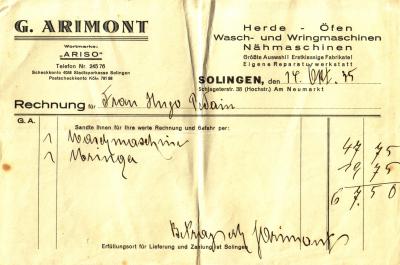 G. ARIMONT
Wortmarke:
„ARISO"
Telefon Nr. 24576
Scheckkonto 4048 Stadtsparkasse Solingen
Postscheckkonto Köln 76198
Herde - Öfen
Wasch- und Wringmaschinen
Nähmaschinen
Größte Auswahl Erstklassige Fabrikate!
Eigene Reparaturwerkstatt
SOLINGEN, den 14. Okt. 35
Schlageterstr. 38 (Hochstr.) Am Neumarkt
Rechnung für Frau Hugo
G. A. Sandte Ihnen für Ihre werte Rechnung und Gefahr per:
1 Waschmaschine 47 75
1 Wringer 19 75
67.50
Betrag erh. Arimont
Erfüllungsort für Lieferung und Zahlung ist Solingen